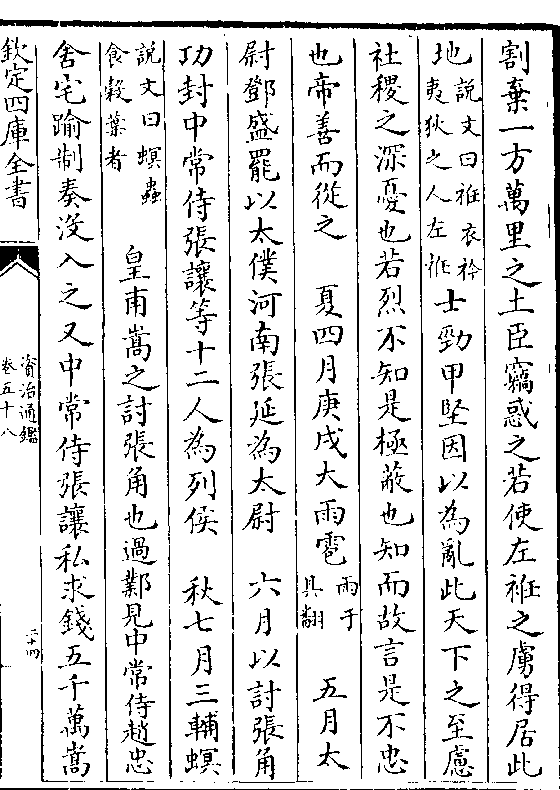 割棄一方萬里之土臣竊惑之若使左袵之虜得居此
地說文曰袵衣衿夷狄之人左袵士勁甲堅因以為亂此天下之至慮
社稷之深憂也若烈不知是極蔽也知而故言是不忠
也帝善而從之　夏四月庚戌大雨雹雨于具翻　五月太
尉鄧盛罷以太僕河南張延為太尉　六月以討張角
功封中常侍張讓等十二人為列侯　秋七月三輔螟
說文曰螟蟲食穀葉者　皇甫嵩之討張角也過鄴見中常侍趙忠
舍宅踰制奏沒入之又中常侍張讓私求錢五千萬嵩
欽定四庫全書
資治通鑑
卷五十八
二十四